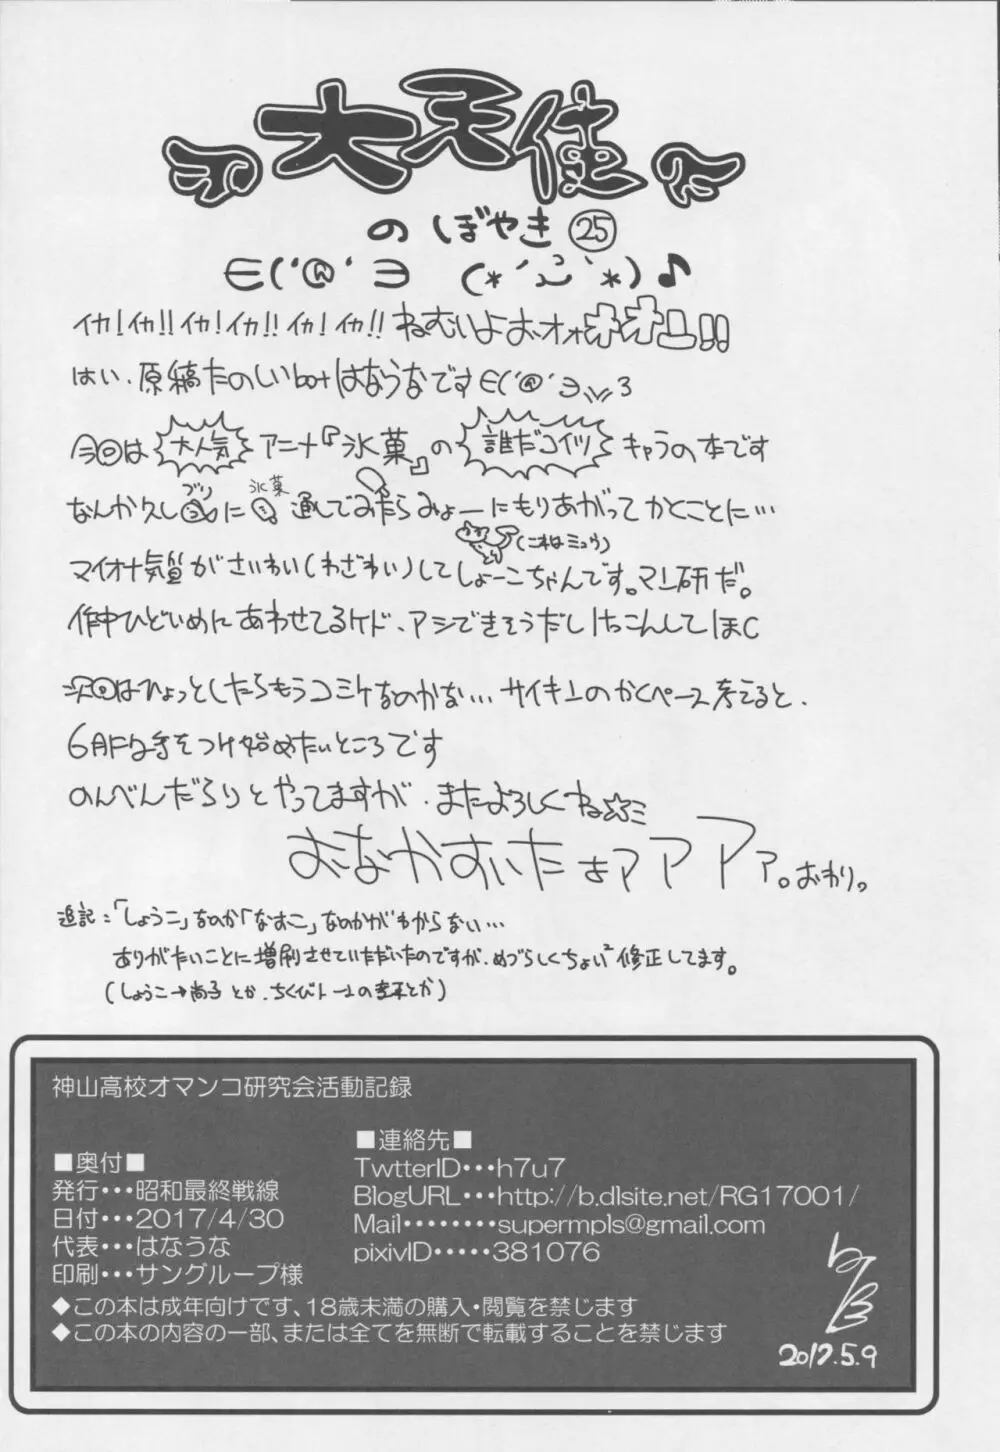 大天使
のぼやき㉕
∈('@'∋ (*´ω`*)♪
イカ!イカ!!イカ!イカ!!イカ!イカ!! ねむいよおオォオオユ!!
はい、原稿たのしいbotはなうなです∈('@'∋ 3
今回は大人気アニナ『氷菓』の誰だコイツキャラの本です
なんか久しブリに氷菓通しでみたらみょーにもりあがってかくことに…
マイオナ気質がさいわい(わざわい)してしょーこちゃんです。マン研だ。
(これはミュウ)
作中ひどいめにあわせてるケド、アシできそうだしけっこんしてほC
次回はひょっとしたらもうコミケなのかな… サイキンのかくペース考えると、
6月には手をつけ始めたいところです
のんべんだらりとやってますが、またよろしくね☆ミ
おなかすいたぁアアアァ。おわり。
追記:「しょうこ」なのか「なおこ」なのかがわからない…
ありがたいことに増刷させていただいたのですが、めづらしくちょい²修正してます。
(しょうこ→尚子とか、ちくびトーンのとか)
神山高校オマンコ研究会活動記録
■奥付■
発行・・・昭和最終戦線
日付・・・2017/4/30
代表・・・はなうな
印刷・・・サングループ様
■連絡先■
TwtterID・・・h7u7
BlogURL・・・http://b.dlsite.net/RG17001/
Mail・・・・・・・・supermpls@gmail.com
pixivID・・・・・381076
◆この本は成年向けです、18歳未満の購入・閲覧を禁じます
◆この本の内容の一部、または全てを無断で転載することを禁じます
2017.5.9